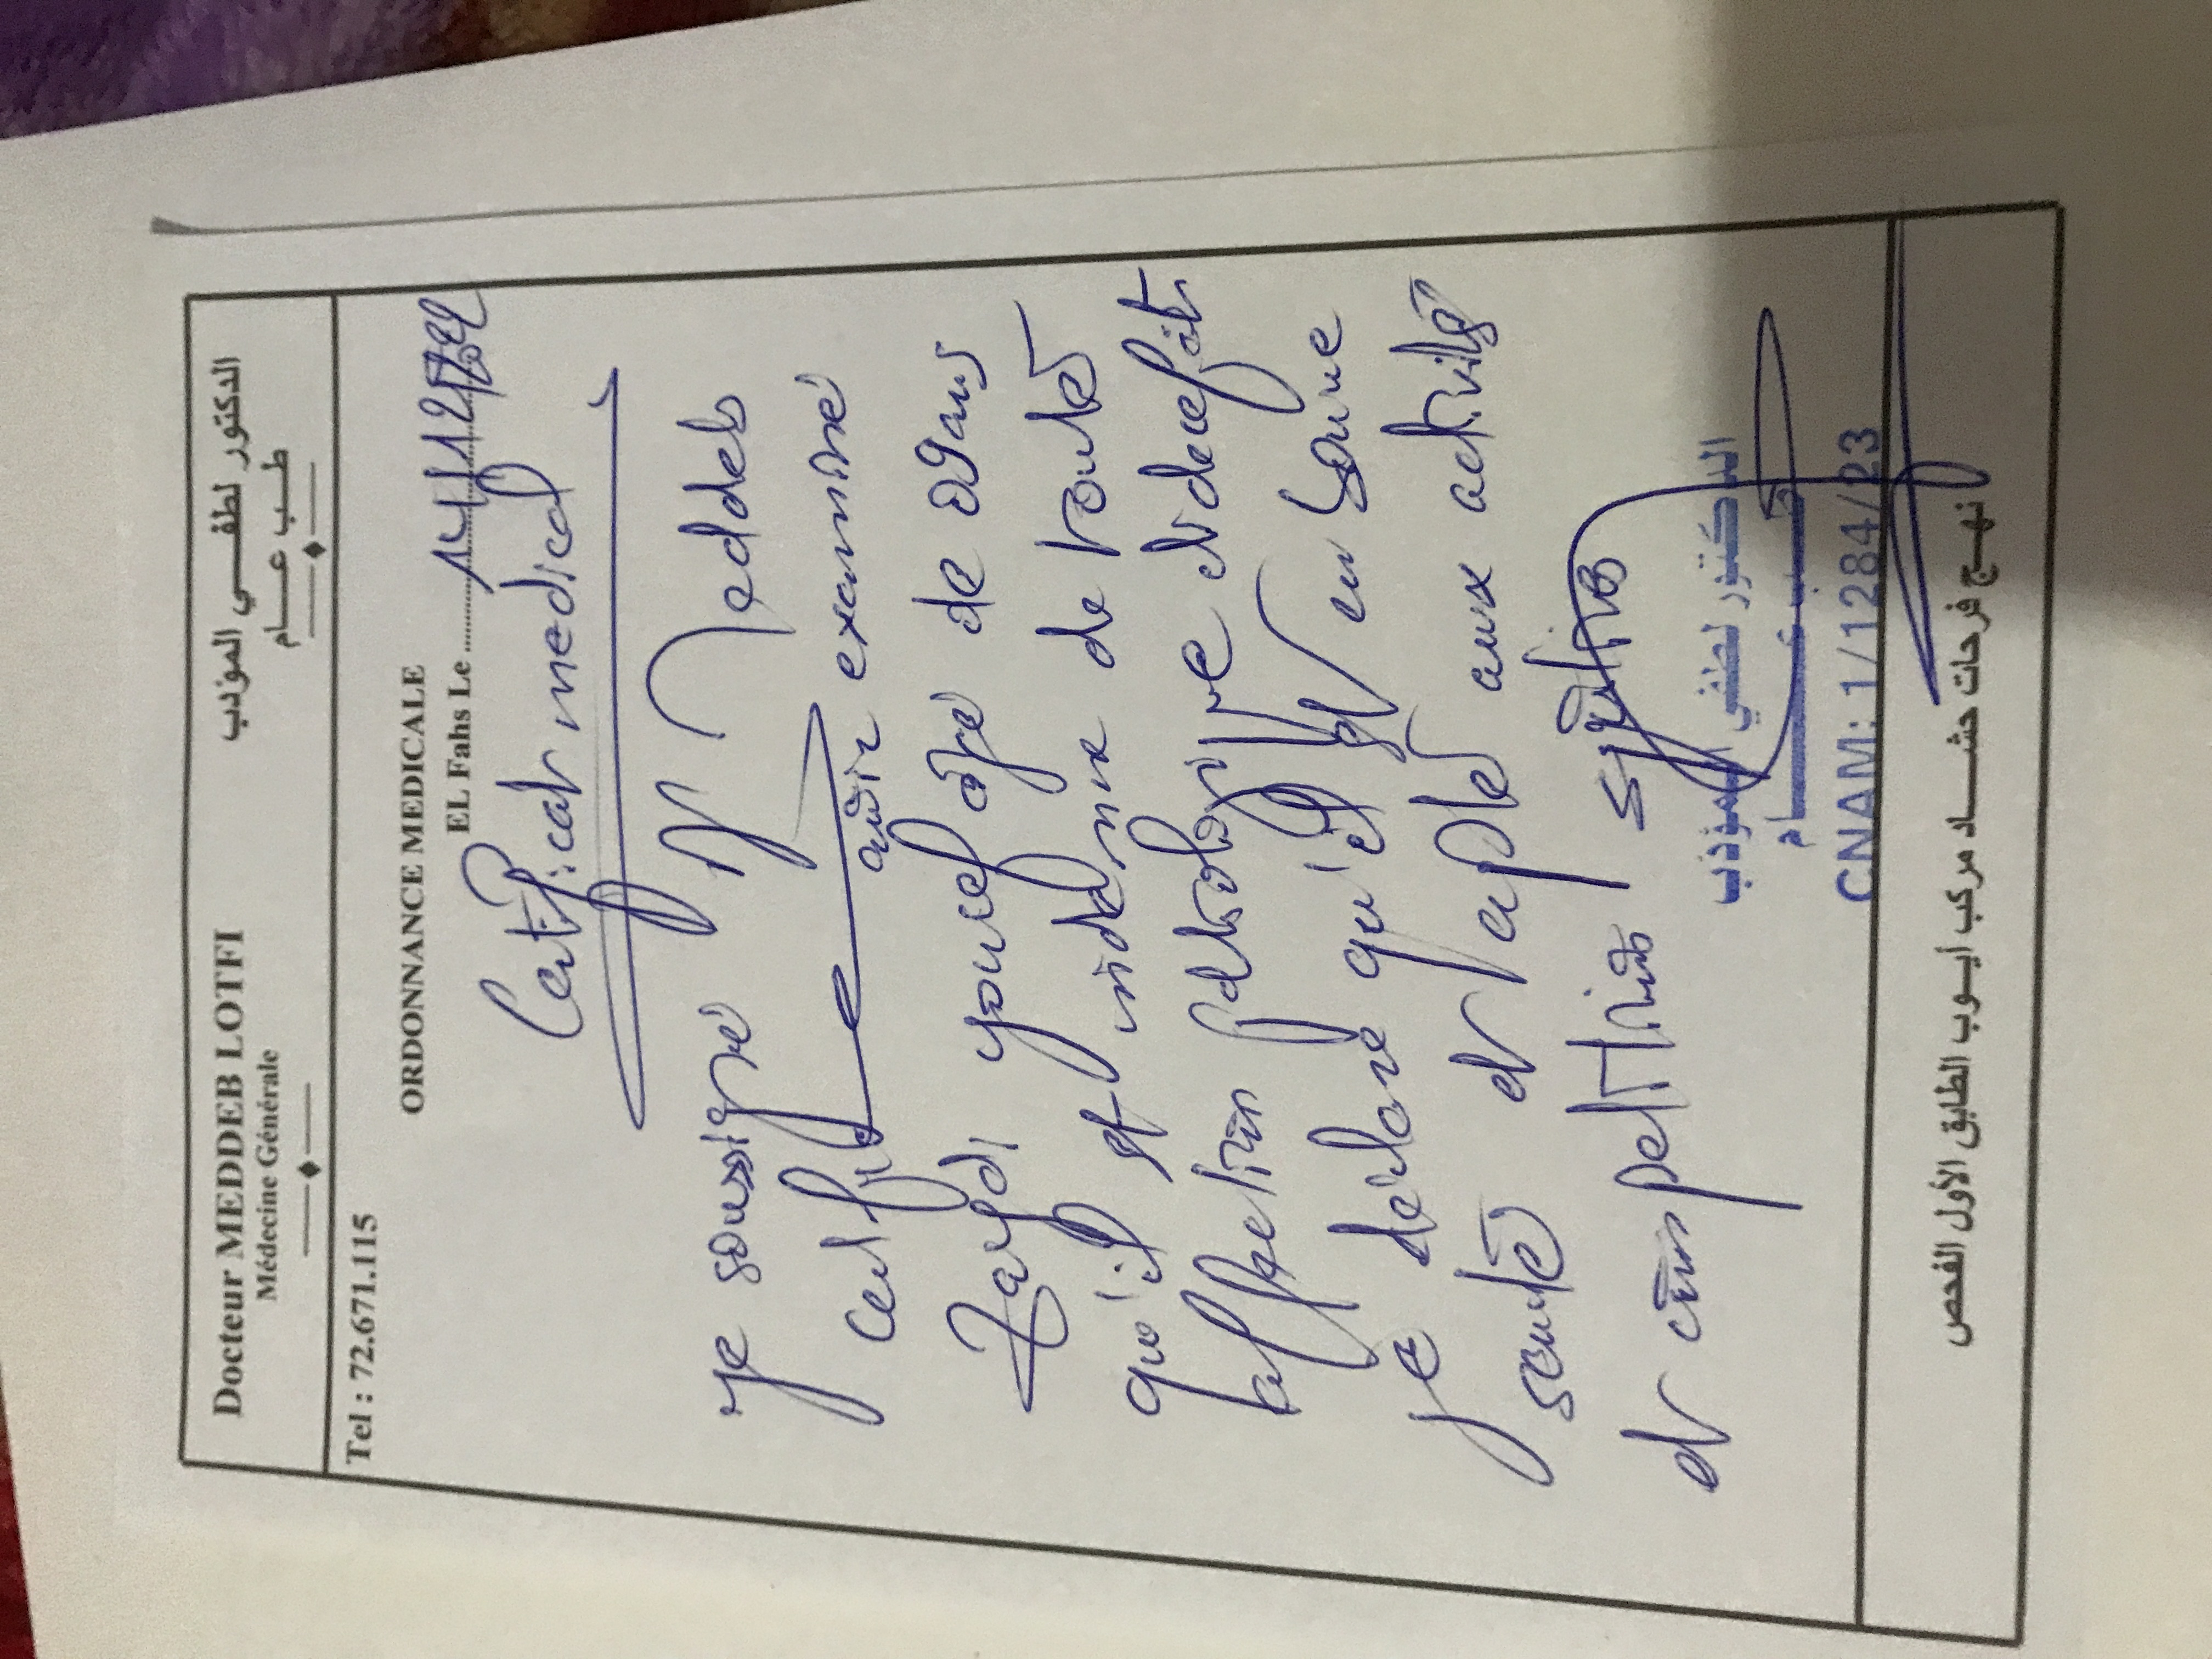 Docteur MEDDEB LOTFI
Médecine Générale
الدكتور لطفــي المؤدب
طــب عــام
Tel : 72.671.115
ORDONNANCE MEDICALE
EL Fahs Le 14/12/
Certificat medical
Je soussigné Dr Meddeb
certifie avoir examiné
Zaydi Youcef âgé de 09 ans
qu'il est indemne de toute
affection et
Je déclare qu'il est en bonne
santé et apte aux activités
et compétitions sportives
الدكتور لطفي المؤدب
طب عام
CNAM: 1/1284/23
نهـج فرحات حشــاد مركب أيــوب الطابق الأول الفحص